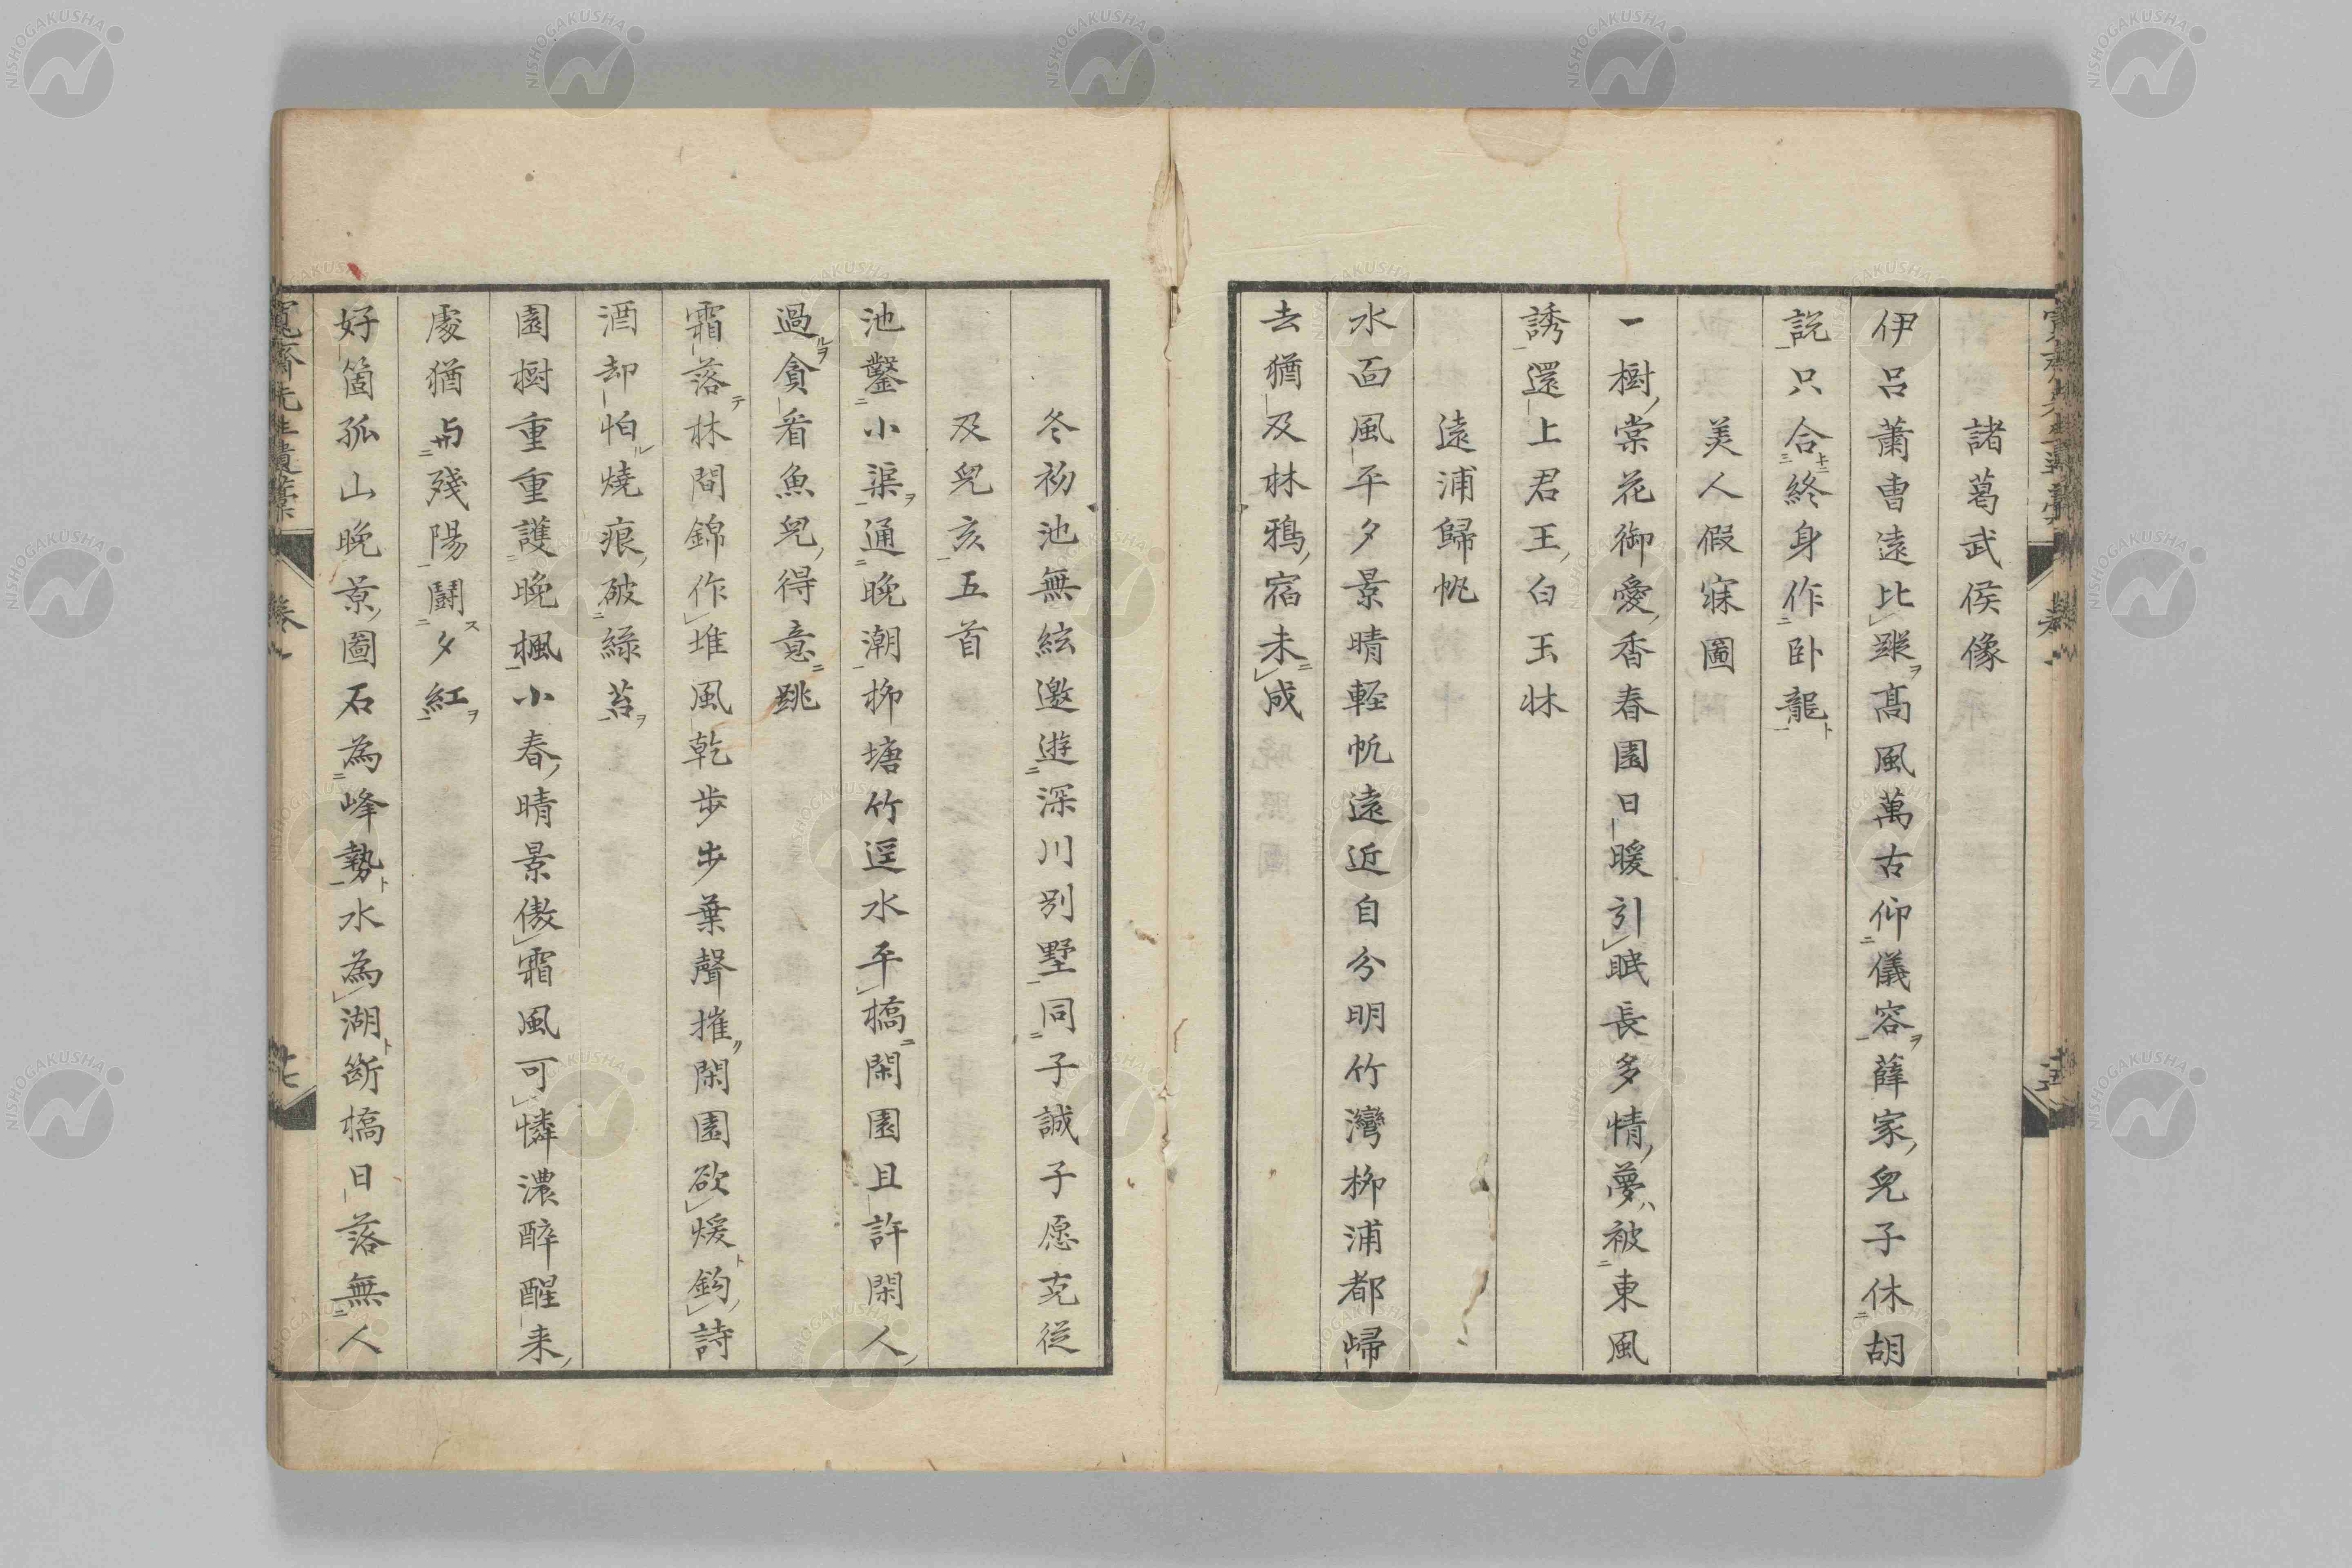 諸葛武侯像
伊呂蕭曺遠比蹤高風萬古仰儀容薛家兒子休胡
説只合終身作卧龍
美人假寐圖
一樹棠花御愛香春園日暖引眠長多情夢被東風
誘還上君王白玉牀
遠浦歸帆
水面風平夕景晴軽帆遠近自分明竹灣柳浦都歸
去猶及林鴉宿未成
冬初池無絃邀遊深川別墅同子誠子愿克従
及兒亥五首
池鑿小渠通晩潮柳塘竹逕水平橋閑園且許閑人
過貪看魚兒得意跳
霜落林間錦作堆風乾歩歩葉聲摧閑園欲煖鈎詩
酒却怕燒痕破緑苔
園樹重重護晩楓小春晴景傲霜風可憐濃醉醒来
處猶与殘陽鬪夕紅
好箇孤山晩景圖石為峰勢水為湖斷橋日落無人
寛齋先生遺藁
卷
NISHOGAKUSHA